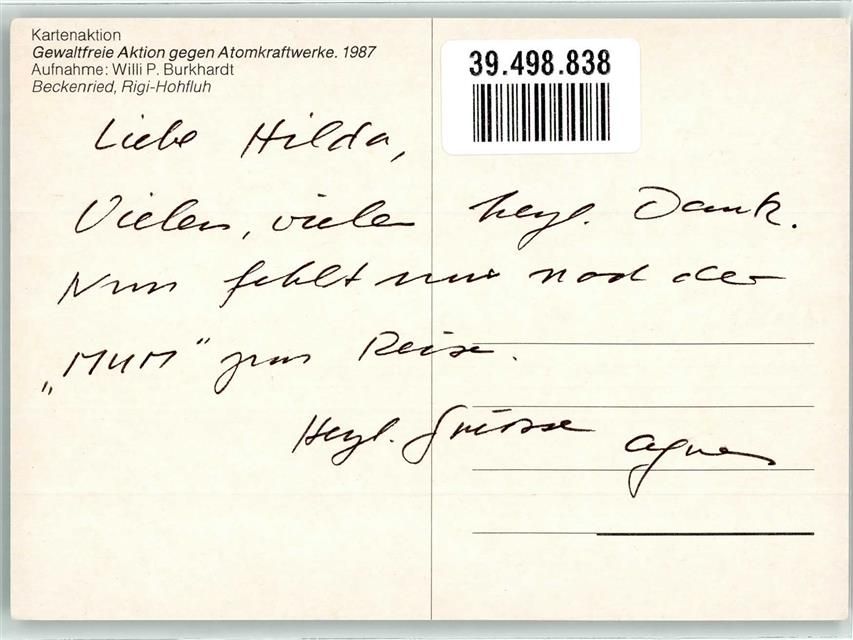 Kartenaktion
Gewaltfreie Aktion gegen Atomkraftwerke. 1987
Aufnahme: Willi P. Burkhardt
Beckenried, Rigi-Hohfluh
39.498.838
Liebe Hilda,
Vielen, vielen herzl. Dank.
Nun fehlt nur noch der
„MUM" zur Reise.
Herzl. Grüsse Agnes